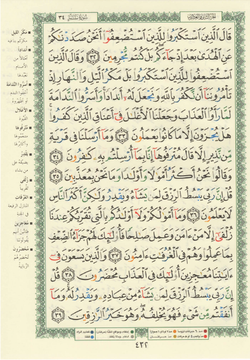 ٣٤
قَالَ الَّذِينَ اسْتَكْبَرُوا لِلَّذِينَ اسْتُضْعِفُوا أَنَحْنُ صَدَدْنَاكُمْ
عَنِ الْهُدَىٰ بَعْدَ إِذْ جَاءَكُم بَلْ كُنتُم مُّجْرِمِينَ ٣٢ وَقَالَ الَّذِينَ
اسْتُضْعِفُوا لِلَّذِينَ اسْتَكْبَرُوا بَلْ مَكْرُ اللَّيْلِ وَالنَّهَارِ إِذْ
تَأْمُرُونَنَا أَن نَّكْفُرَ بِاللَّهِ وَنَجْعَلَ لَهُ أَندَادًا وَأَسَرُّوا النَّدَامَةَ
لَمَّا رَأَوُا الْعَذَابَ وَجَعَلْنَا الْأَغْلَالَ فِي أَعْنَاقِ الَّذِينَ كَفَرُوا
هَلْ يُجْزَوْنَ إِلَّا مَا كَانُوا يَعْمَلُونَ ٣٣ وَمَا أَرْسَلْنَا فِي قَرْيَةٍ
مِّن نَّذِيرٍ إِلَّا قَالَ مُتْرَفُوهَا إِنَّا بِمَا أُرْسِلْتُم بِهِ كَافِرُونَ ٣٤
وَقَالُوا نَحْنُ أَكْثَرُ أَمْوَالًا وَأَوْلَادًا وَمَا نَحْنُ بِمُعَذَّبِينَ ٣٥
قُلْ إِنَّ رَبِّي يَبْسُطُ الرِّزْقَ لِمَن يَشَاءُ وَيَقْدِرُ وَلَٰكِنَّ أَكْثَرَ النَّاسِ
لَا يَعْلَمُونَ ٣٦ وَمَا أَمْوَالُكُمْ وَلَا أَوْلَادُكُم بِالَّتِي تُقَرِّبُكُمْ عِندَنَا
زُلْفَىٰ إِلَّا مَنْ آمَنَ وَعَمِلَ صَالِحًا فَأُولَٰئِكَ لَهُمْ جَزَاءُ الضِّعْفِ
بِمَا عَمِلُوا وَهُمْ فِي الْغُرُفَاتِ آمِنُونَ ٣٧ وَالَّذِينَ يَسْعَوْنَ فِي
آيَاتِنَا مُعَاجِزِينَ أُولَٰئِكَ فِي الْعَذَابِ مُحْضَرُونَ ٣٨ قُلْ
إِنَّ رَبِّي يَبْسُطُ الرِّزْقَ لِمَن يَشَاءُ مِنْ عِبَادِهِ وَيَقْدِرُ لَهُ وَمَا
أَنفَقْتُم مِّن شَيْءٍ فَهُوَ يُخْلِفُهُ وَهُوَ خَيْرُ الرَّازِقِينَ ٣٩
٤٣٢